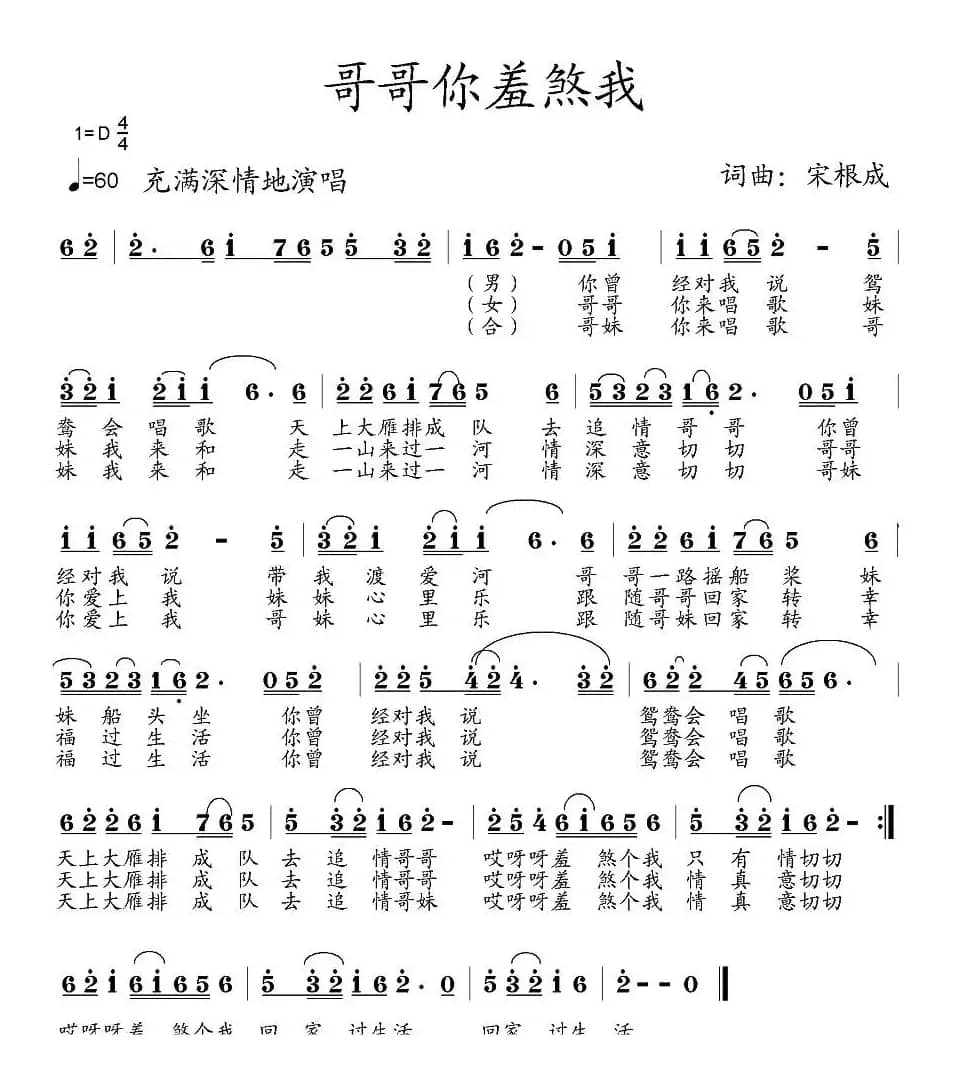 哥哥你羞煞我
1=D 4/4
♩=60 充满深情地演唱
词曲：宋根成
6 2̇ | 2̇. 6 1̇ 7 6 5 5̇ 3̇ 2̇ | 1̇ 6 2̇ - 0 5 1̇ | 1̇ 1̇ 6 5 2̇ - 5̇ |
（男） 你曾 经对我 说 鸳
（女） 哥哥 你来唱 歌 妹
（合） 哥妹 你来唱 歌 哥
3̇ 2̇ 1̇ 2̇ 1̇ 1̇ 6. 6 | 2̇ 2̇ 6 1̇ 7 6 5 6 | 5 3 2 3 1 6̣ 2. 0 5 1̇ |
鸯 会 唱 歌 天 上大雁排成 队 去 追 情 哥 哥 你曾
妹 我 来 和 走 一山来过一 河 情 深 意 切 切 哥哥
妹 我 来 和 走 一山来过一 河 情 深 意 切 切 哥妹
1̇ 1̇ 6 5 2̇ - 5̇ | 3̇ 2̇ 1̇ 2̇ 1̇ 1̇ 6. 6 | 2̇ 2̇ 6 1̇ 7 6 5 6 |
经对我 说 带 我 渡 爱 河 哥 哥一路摇船 桨 妹
你爱上 我 妹 妹 心 里 乐 跟 随哥哥回家 转 幸
你爱上 我 哥 妹 心 里 乐 跟 随哥妹回家 转 幸
5 3 2 3 1 6̣ 2. 0 5 2̇ | 2̇ 2̇ 5̇ 4̇ 2̇ 4̇. 3̇ 2̇ | 6 2̇ 2̇ 4 5 6 5 6. |
妹 船 头 坐 你曾 经对我 说 鸳鸯会 唱 歌
福 过 生 活 你曾 经对我 说 鸳鸯会 唱 歌
福 过 生 活 你曾 经对我 说 鸳鸯会 唱 歌
6 2̇ 2̇ 6 1̇ 7 6 5 | 5̇ 3̇ 2̇ 1̇ 6 2̇ - | 2̇ 5̇ 4̇ 6 1̇ 6 5 6 | 5̇ 3̇ 2̇ 1̇ 6 2̇ - :‖
天上大雁排 成 队 去 追 情哥哥 哎呀呀羞 煞个我 只 有 情切切
天上大雁排 成 队 去 追 情哥哥 哎呀呀羞 煞个我 情 真 意切切
天上大雁排 成 队 去 追 情哥妹 哎呀呀羞 煞个我 情 真 意切切
6 2̇ 1̇ 6 1̇ 6 5 6 | 5̇ 3̇ 2̇ 1̇ 6 2̇. 0 | 5̇ 3̇ 2̇ 1̇ 6 | 2̇ - - 0 ‖
哎呀呀羞 煞个我 回 家 过生活 回家 过生 活